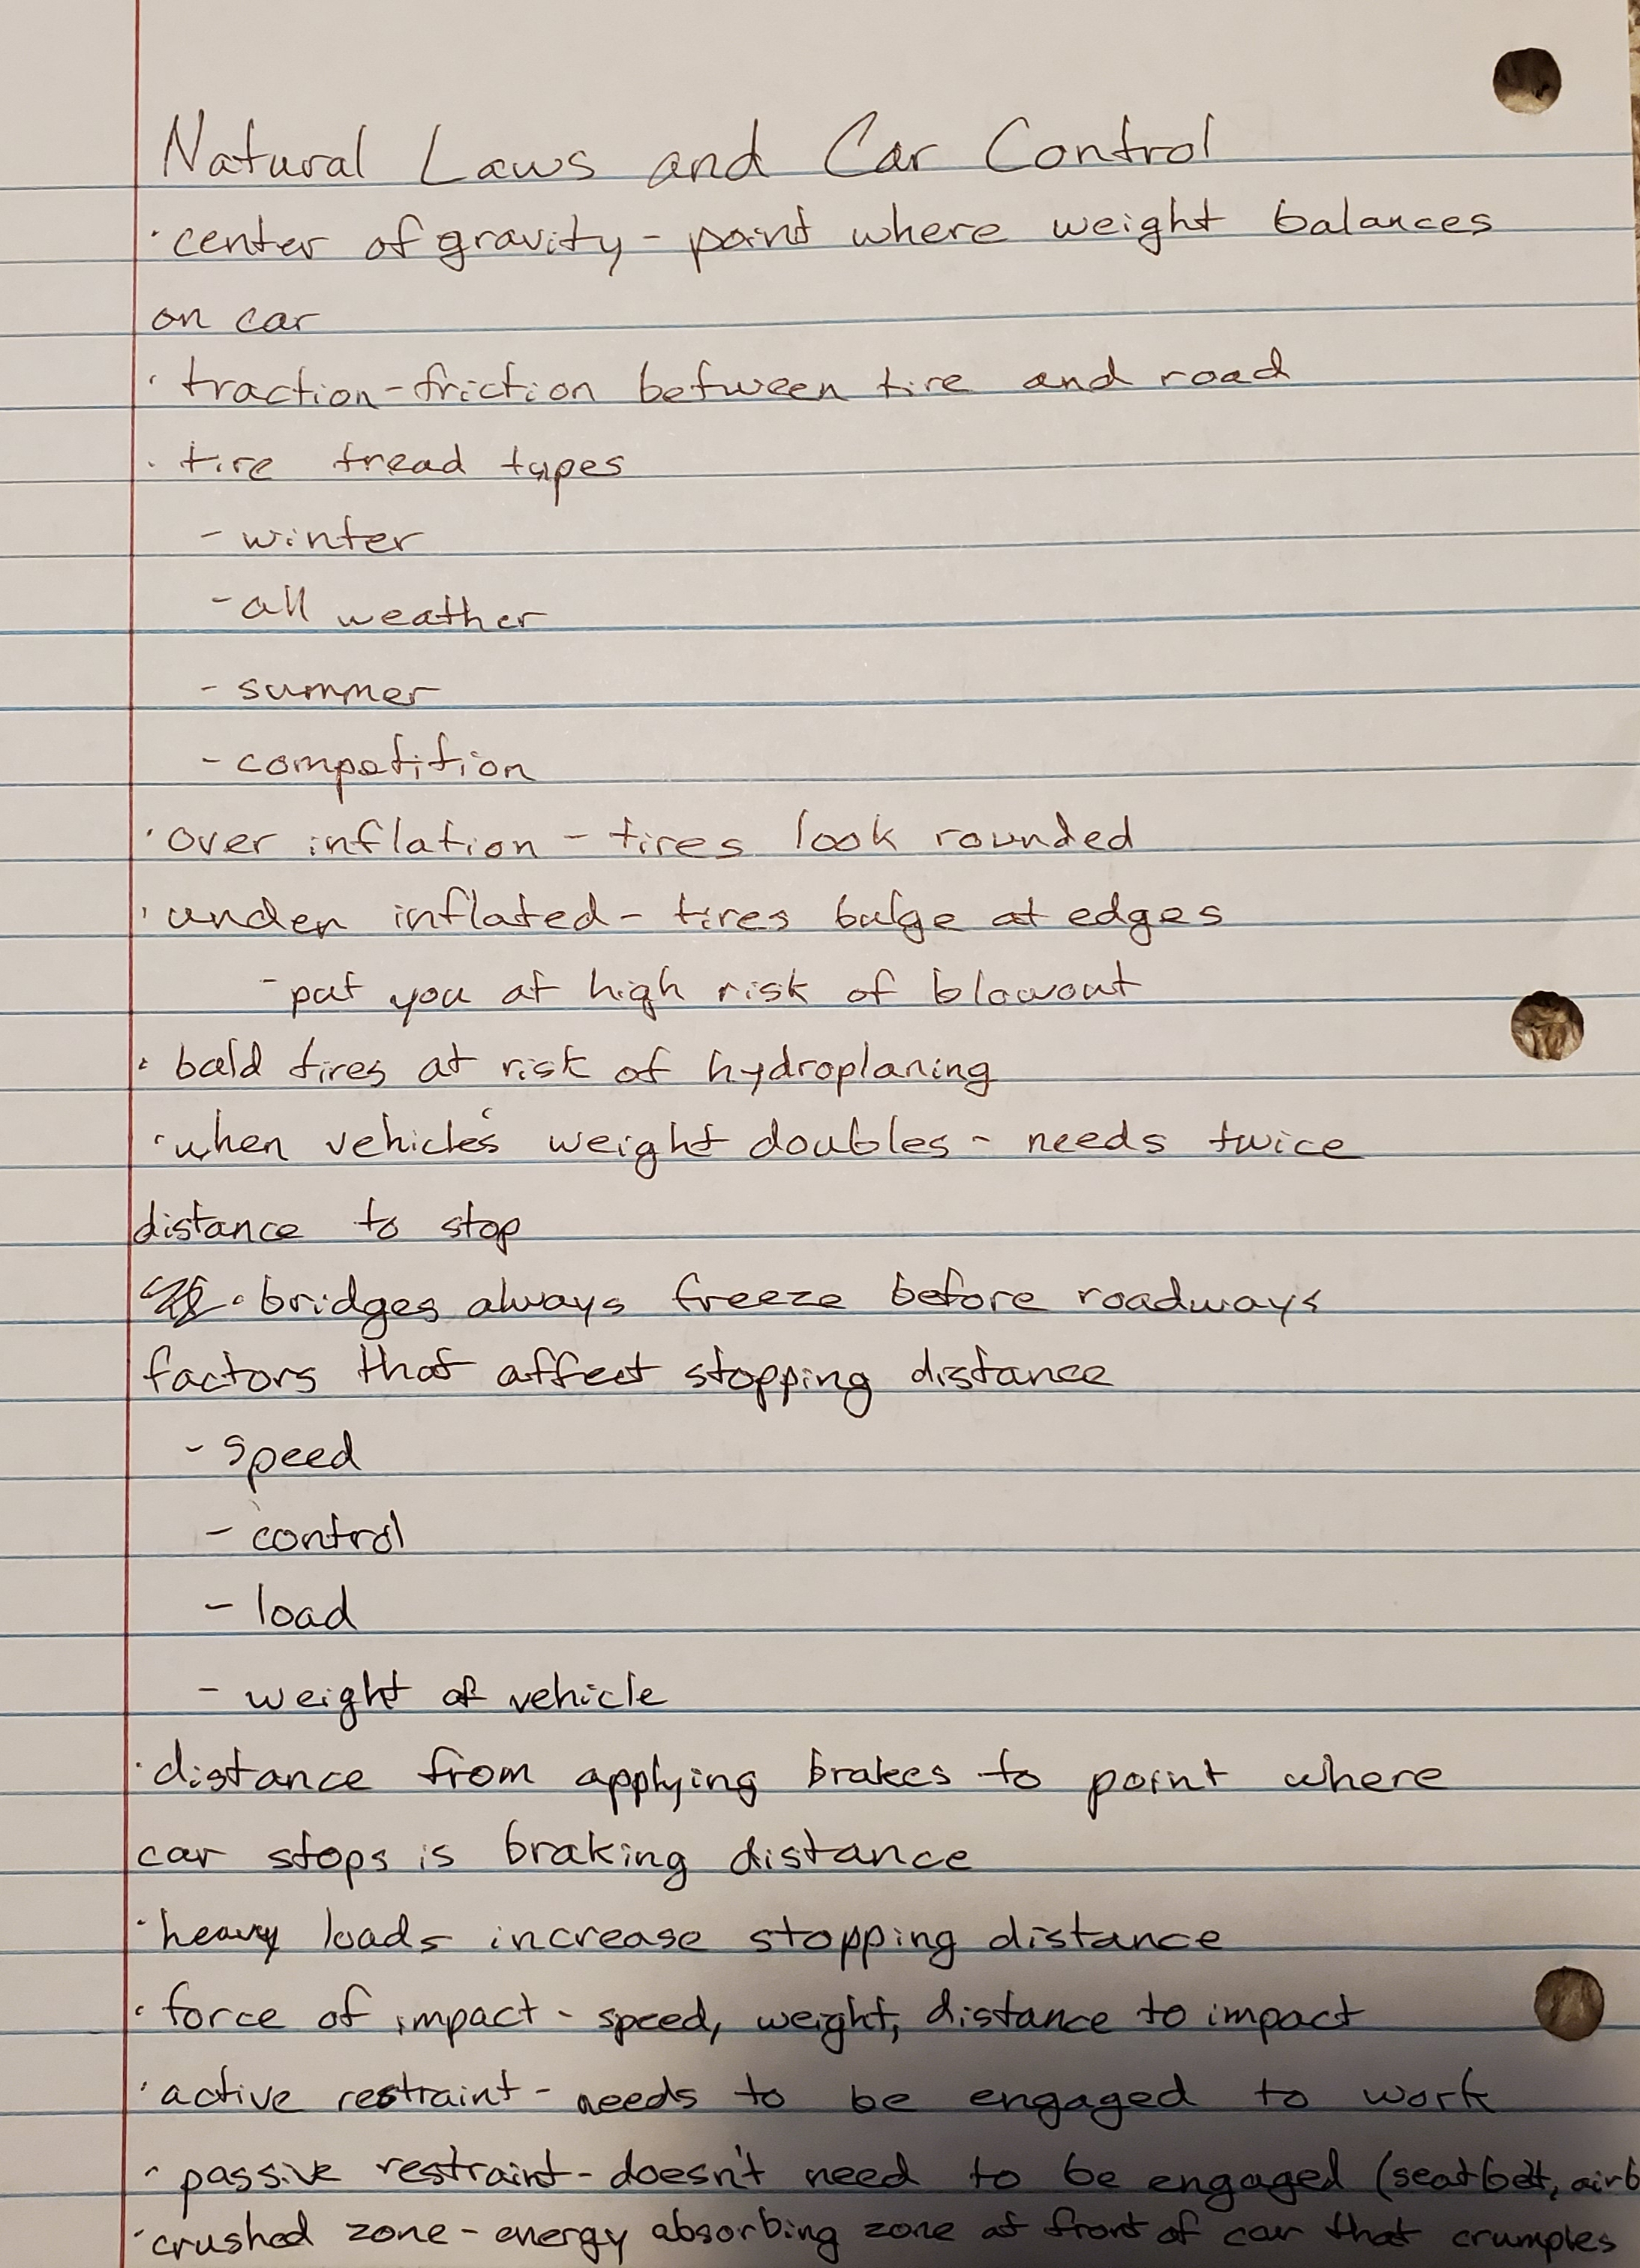 Natural Laws and Car Control
· center of gravity - point where weight balances
on car
· traction - friction between tire and road
· tire tread types
- winter
- all weather
- summer
- competition
· over inflation - tires look rounded
· under inflated - tires bulge at edges
- put you at high risk of blowout
· bald tires at risk of hydroplaning
· when vehicle's weight doubles - needs twice
distance to stop
· bridges always freeze before roadways
factors that affect stopping distance
- speed
- control
- load
- weight of vehicle
· distance from applying brakes to point where
car stops is braking distance
· heavy loads increase stopping distance
· force of impact - speed, weight, distance to impact
· active restraint - needs to be engaged to work
· passive restraint - doesn't need to be engaged (seatbelt, airb
· crushed zone - energy absorbing zone at front of car that crumples